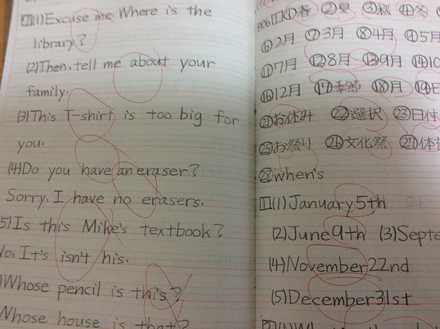 (1)Excuse me Where is the
library?
(2)Then, tell me about your
family.
(3)This T-shirt is too big for
you.
(4)Do you have an eraser?
Sorry, I have no erasers.
5)Is this Mike's textbook?
No. It's isn't his.
Whose pencil is this?
Whose house is that?
①春 ②夏 ③秋 ④冬
⑥2月 ⑦3月 ⑧4月 ④5月
⑦1月 ⑫8月 ⑬9月 ⑭10
⑯12月 ⑰季節 ⑱月 ⑲日
㉑お休み ㉒選択 ㉓日付
㉕お祭り ㉖文化祭 ㉗体
㉘when's
(1)January5th
(2)June9th (3)Septe
(4)November22nd
(5)December31st